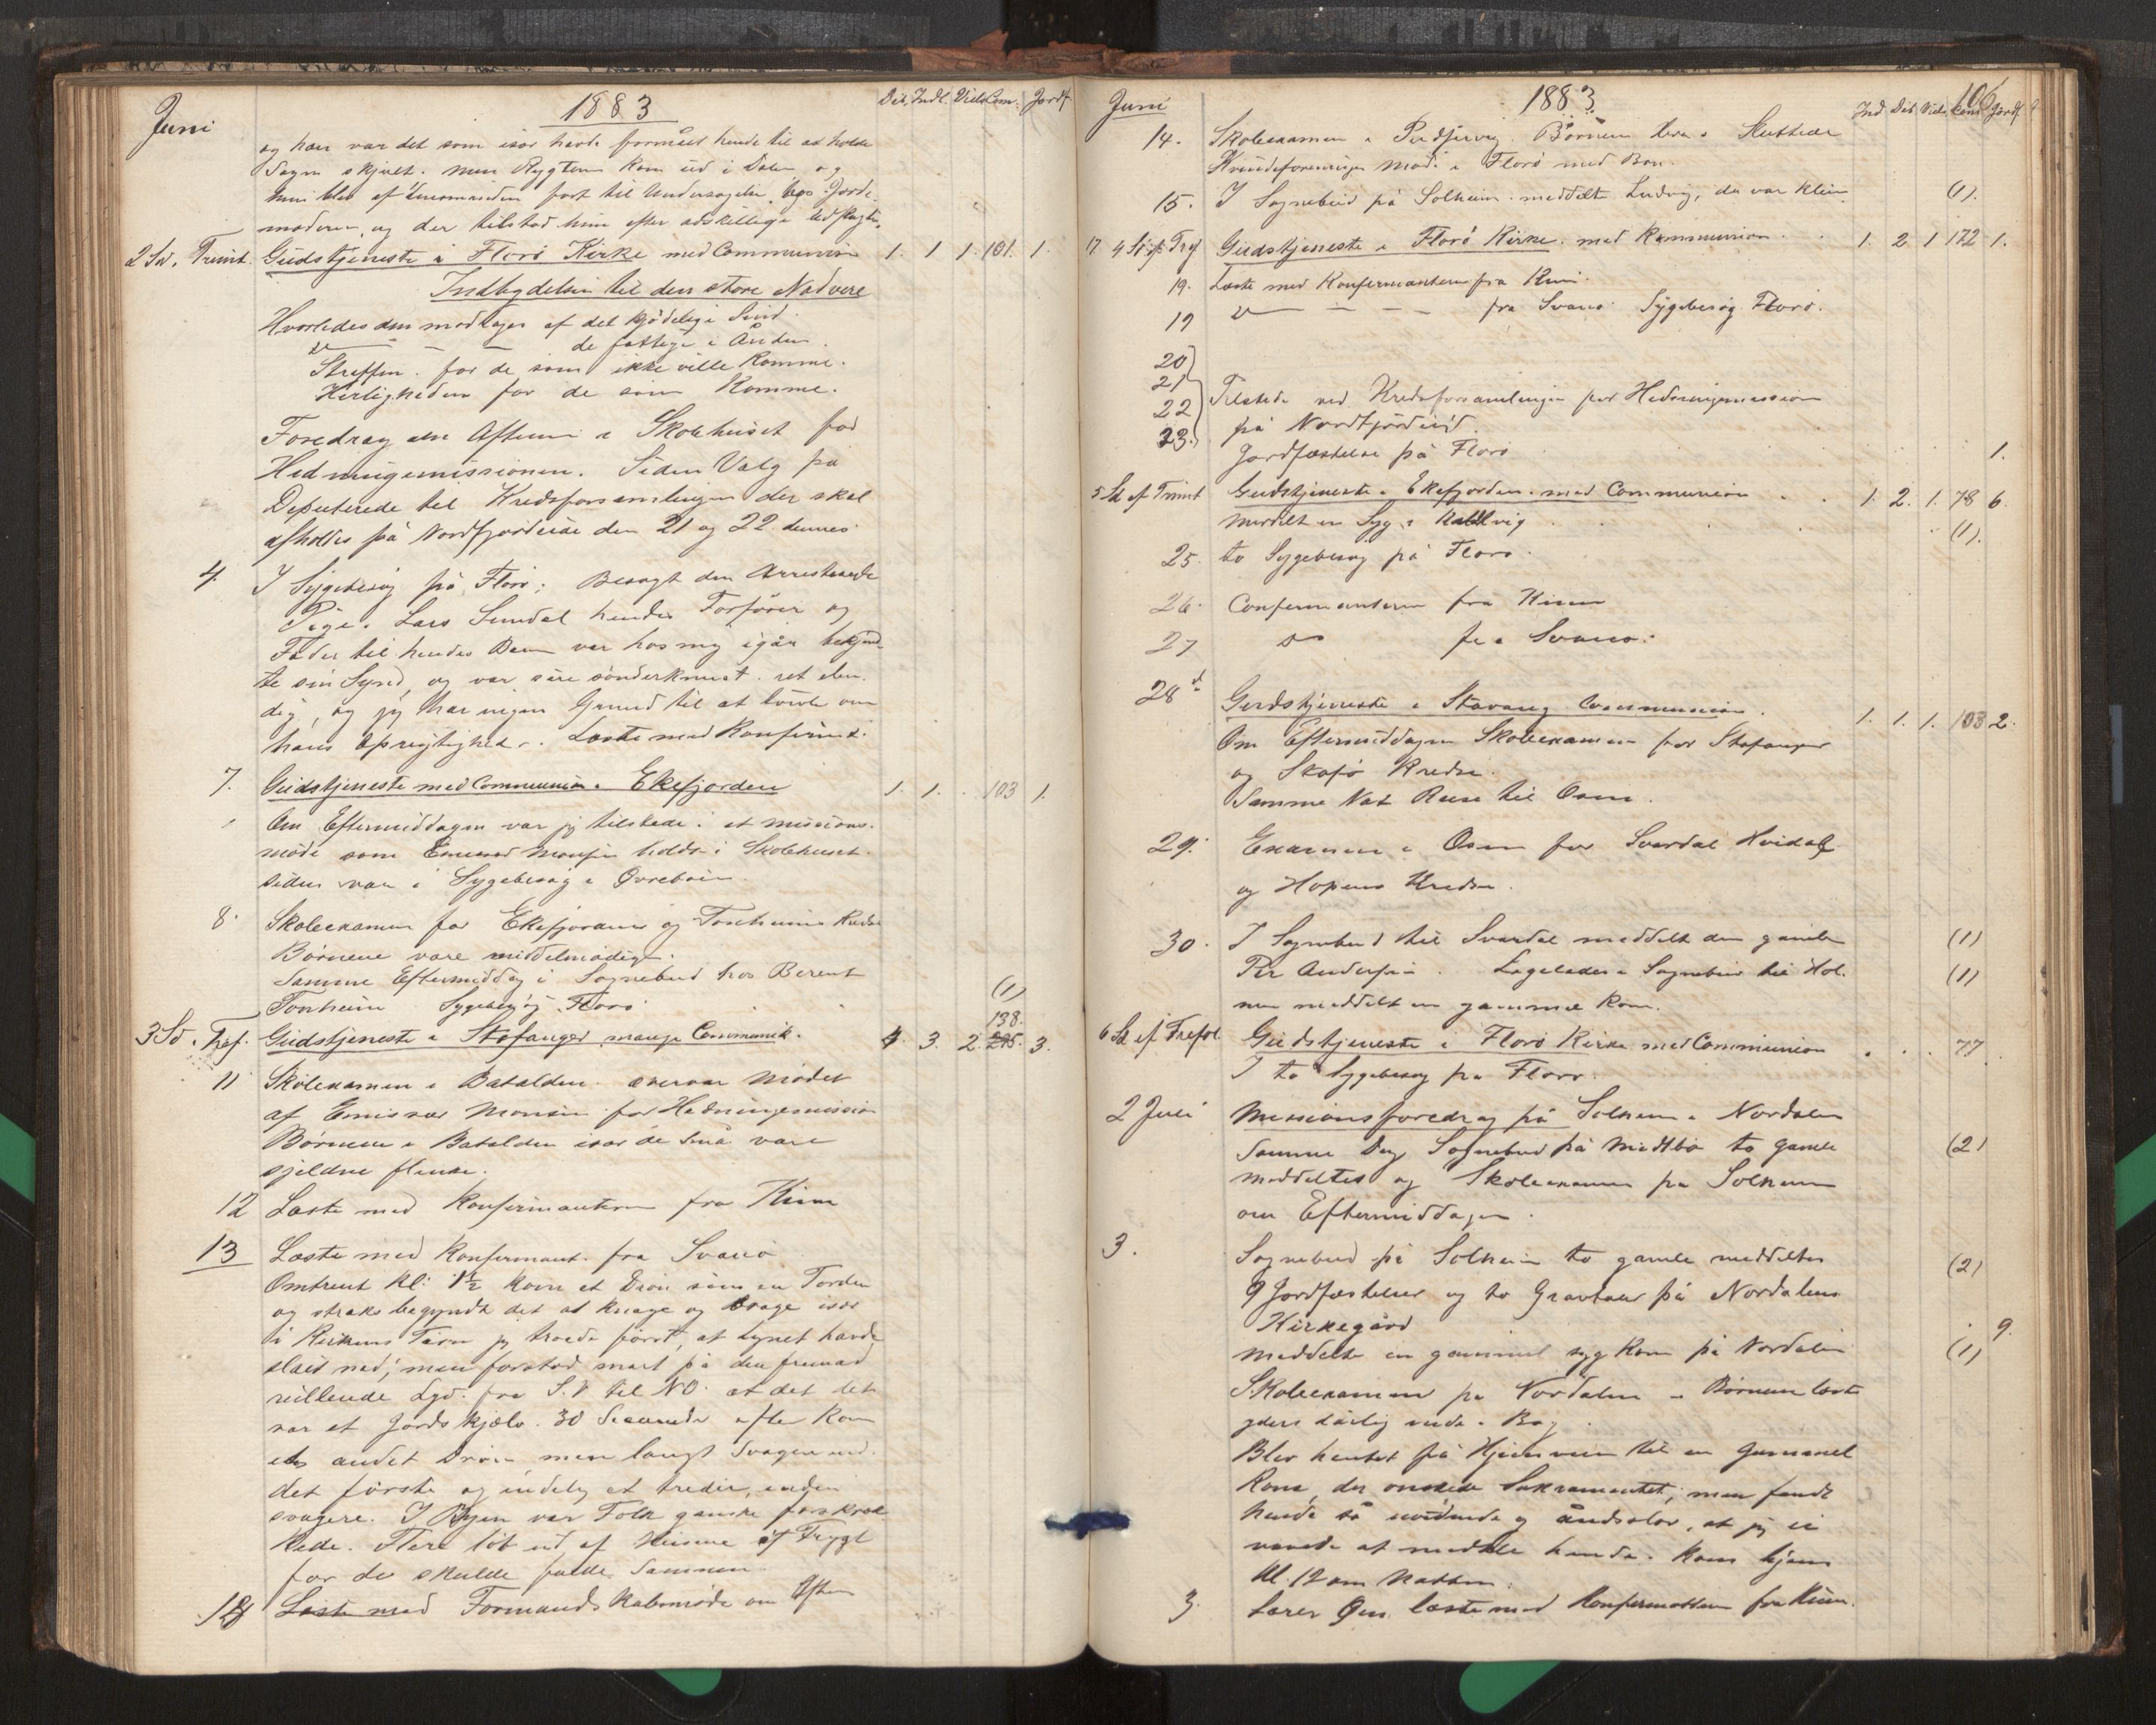 Juni 1883 Døb. Indl. Viels. Com. Jordf.
og her var det som især havde formået hende til at holde
Sagen skjult. men Rygten kom ud i Dalen og
hun blev af Lensmanden ført til Undersøgelse hos Jorde-
moderen, og der tilstod hun efter adskillige Udflugter.
2 Sd. Trinit. Gudstjeneste i Florø Kirke med Communion 1. 1 1. 101. 1.
Indbydelsen til den store Nadvere
Hvorledes den modtages af det kjødelige Sind.
de fattige i Ånden.
Straffen for de som ikke ville komme.
Herligheden for de som komme.
Foredrag om Aftenen i Skolehuset for
Hedningemissionen. Siden Valg på
Deputerede til Kredsforsamlingen der skal
afholdes på Nordfjordeide den 21 og 22 dennes
4. I Sygebesøg på Florø: Besøgt den Arresterede
Pige. Lars Sundal hendes Forfører og
Fader til hendes Barn var hos mig igår bekjend-
te sin Synd, og var såre sønderknust. ret elen-
dig, og jeg har ingen Grund til at tvivle om
hans Oprigtighed. Læste med Konfirmd.
7. Gudstjeneste med Communion i Ekefjorden 1. 1. 103 1.
Om Eftermiddagen var jeg tilstede i et missions-
møde som Emissær Monsen holdt i Skolehuset.
siden var i Sygebesøg i Øvrebøen
8. Skoleexamen for Ekefjordens og Tonheims Kredse
Børnene vare middelmådige.
Samme Eftermiddag i Sognebud hos Berent
Tonheim Sygebesøg Florø (1)
138.
3 Sd. Tref. Gudstjeneste i Stafanger mange Communik. 4 3. 2. 295. 3.
11 Skolexamen i Batalden. overvar Mødet
af Emissær Monsen for Hedningemission
Børnene i Batalden især de Små vare
sjeldne flinke.
12 Læste med Konfirmanterne fra Kinn
13 Læste med Konfirmant. fra Svanø
Omtrent Kl: 1½ kom et Drøn som en Torden
og straks begyndte det at knage og brage især
i Kirkens Tårn jeg troede først, at Lynet havde
slået ned; men forstod snart på den fremad
rullende Lyd. fra S.V til NO. at det det
var et Jordskjælv. 30 Secunder efter kom
et andet Drøn men langt svagere end
det første og endelig et tredie, endnu
svagere. I Byen var Folk ganske forskræk-
kede. Flere løb ud af Husene af Frygt
for de skulde falde sammen.
14 Læste med Formandskabsmøde om Aften
Juni 1883. 106 Ind Døb. Viels Com Jordf.
14. Skolexamen i Børnene
Kvindeforenings møde i Florø med Bøn.
15. I Sognebud på Solheim. meddelte Ludvig, der var klein (1).
17. 4 S. ef. Tref. Gudstjeneste i Florø Kirke med Kommunion 1. 2 1 172 1.
19. Læste med Konfirmanterne fra Kinn.
19 fra Svanø. Sygebesøg Florø.
20
21
22 Tilstede ved Kredsforsamlingen for Hedningemission
23. på Nordfjordeid.
Jordfæstelse på Florø 1.
5 Sd ef Trinit Gudstjeneste i Ekefjorden. med Communion 1. 2. 1. 78 6.
meddelt en Syg i (1).
25. to Sygebesøg på Florø.
26. Confirmanterne fra Kinn
27 do fra Svanø.
28 Gudstjeneste i Stavang Communion. 1. 1. 1. 103 2.
Om Eftermiddagen Skoleexamen for Stafanger
og Skafø Kredse.
Samme Nat Reise til Osen.
29. Examen i Osen for Svardal Hvidal
og Hopens Kredse.
30. I Sognebud til Svardal meddelt den gamle (1)
Per Andersen. Ligeledes i Sognebud til Hol- (1)
men meddelt en gammel Kone.
6 Sd ef Trefol. Gudstjeneste i Florø Kirke med Communion 77
I to Sygebesøg på Florø.
2 Juli Missionsforedrag på Solheim i Nordalen
Samme Dag Sognebud på Midtbø to gamle (2)
meddeltes og Skoleexamen på Solheim
om Eftermiddagen.
3. Sognebud på Solheim to gamle meddeltes (2)
9 Jordfæstelser og to Gravtaler på Nordalens
Kirkegård 9.
meddelte en gammel syg Kone på Nordalen (1)
Skoleexamen på Nordalen. Børnene læste
yders dårlig inde i Bog.
Blev hentet på Hjemveien til en gammel
Kone, der ønskede Sakramentet; men fandt
hende så uvidende og åndssløv, at jeg ei
vovede at meddele hende. kom hjem
Kl. 12 om Natten.
3. Lærer læste med Konfirmanterne fra Kinn.